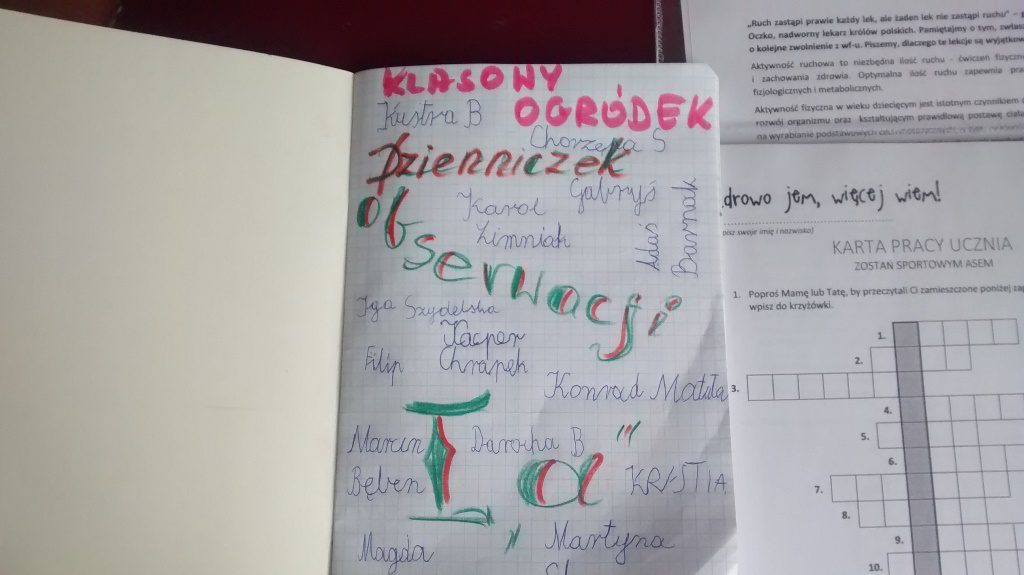 KLASONY
OGRÓDEK
Kustra B
Chorzępa S
Dzienniczek
Gabryś
Karol
Zimniak
Adaś
Barnak
obserwacji
Iga Szydełska
Kacper
Chrapek
Filip
Konrad Matuła
Marcin
Bęben
Darocha B
I "a"
Magda
Martyna
„Ruch zastąpi prawie każdy lek, ale żaden lek nie zastąpi ruchu" –
Oczko, nadworny lekarz królów polskich. Pamiętajmy o tym,
o kolejne zwolnienie z wf-u. Piszemy, dlaczego te lekcje są
Aktywność ruchowa to niezbędna ilość ruchu - ćwiczeń
i zachowania zdrowia. Optymalna ilość ruchu zapewnia
fizjologicznych i metabolicznych.
Aktywność fizyczna w wieku dziecięcym jest istotnym czynnikiem
rozwój organizmu oraz kształtującym prawidłową postawę ciała
na wyrabianie podstawowych
drowo jem, więcej wiem!
pisz swoje imię i nazwisko)
KARTA PRACY UCZNIA
ZOSTAŃ SPORTOWYM ASEM
1. Poproś Mamę lub Tatę, by przeczytali Ci zamieszczone poniżej
wpisz do krzyżówki.
1.
2.
3.
4.
5.
6.
7.
8.
9.
10.